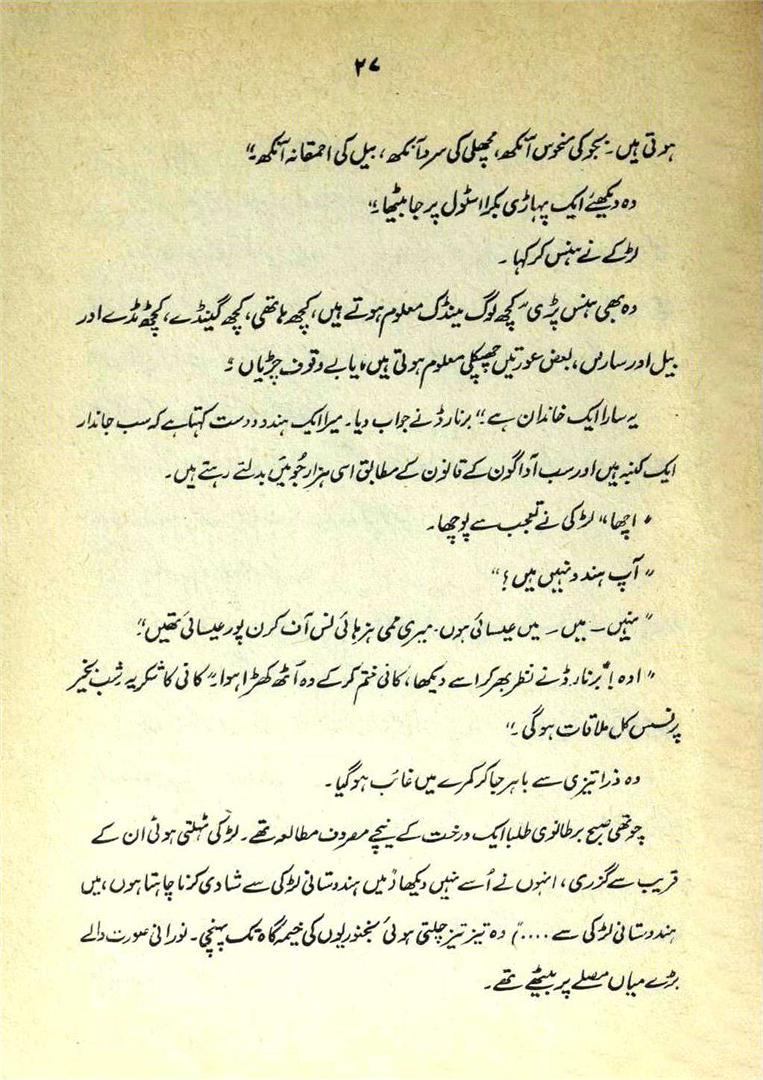 ۲۷
ہوتی ہیں۔ بجو کی منحوس آنکھ، مچھلی کی سرد آنکھ، بیل کی احمقانہ آنکھ۔"
وہ دیکھئے ایک پہاڑی بکرا اسٹول پر جا بیٹھا۔"
لڑکے نے ہنس کر کہا۔
وہ بھی ہنس پڑی "کچھ لوگ مینڈک معلوم ہوتے ہیں، کچھ ہاتھی، کچھ گینڈے، کچھ ٹڈے اور
بیل اور سارس، بعض عورتیں چھپکلی معلوم ہوتی ہیں، یا بے وقوف چڑیاں۔"
یہ سارا ایک خاندان ہے۔" برنارڈ نے جواب دیا۔ میرا ایک ہندو دوست کہتا ہے کہ سب جاندار
ایک کنبہ ہیں اور سب آواگون کے قانون کے مطابق اسی ہزار جُو میں بدلتے رہتے ہیں۔
" اچھا" لڑکی نے تعجب سے پوچھا۔
" آپ ہندو نہیں ہیں؟"
" نہیں — میں — میں عیسائی ہوں۔ میری ممی ہز ہائی نس آف کرن پور عیسائی تھیں"
" اوہ!" برنارڈ نے نظر بھر کر اسے دیکھا، کافی ختم کر کے وہ اُٹھ کھڑا ہوا۔" کافی کا شکریہ۔ شب بخیر
پرنسس کل ملاقات ہوگی۔"
وہ ذرا تیزی سے باہر جا کر کمرے میں غائب ہو گیا۔
چوتھی صبح برطانوی طلبا ایک درخت کے نیچے مصروف مطالعہ تھے۔ لڑکی ٹہلتی ہوئی ان کے
قریب سے گزری، انہوں نے اُسے نہیں دیکھا (میں ہندوستانی لڑکی سے شادی کرنا چاہتا ہوں، میں
ہندوستانی لڑکی سے ....) وہ تیز تیز چلتی ہوئی سنجنوریوں کی خیمہ گاہ تک پہنچی۔ نورانی صورت والے
بڑے میاں مصلے پر بیٹھے تھے۔